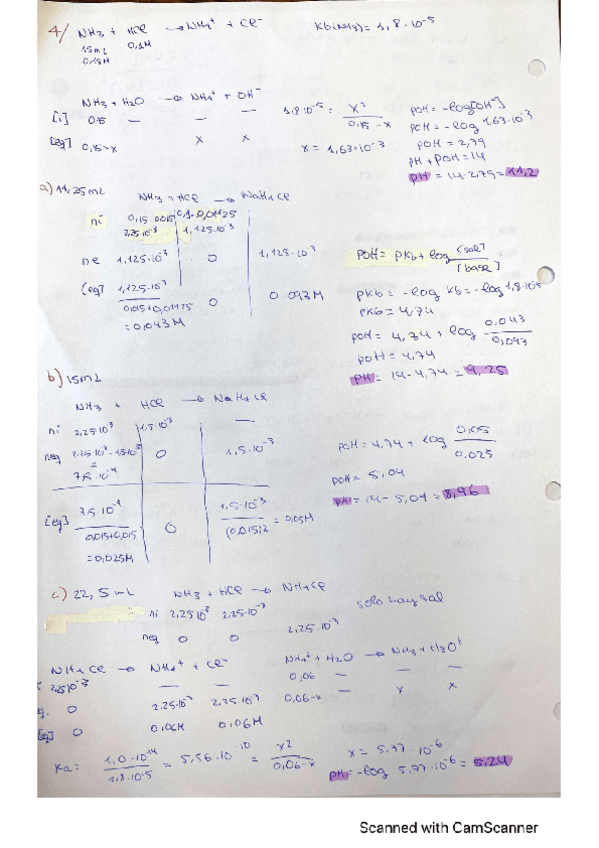 4/ NH3 + HCl → NH4+ + Cl- Kb(NH3) = 1,8·10-5
15mL 0,1M
0,15M
NH3 + H2O → NH4+ + OH-
[i] 0,15 — — —
[eq] 0,15-x x x
1,8·10-5 = x2 / 0,15-x
x = 1,63·10-3
pOH = -log[OH-]
pOH = -log 1,63·10-3
pOH = 2,79
pH + pOH = 14
pH = 14-2,79 = 11,2
a) 11,25mL
NH3 + HCl → NH4Cl
ni 0,15·0,015 0,1·0,01125
2,25·10-3 1,125·10-3
ne 1,125·10-3 0 1,125·10-3
[eq] 1,125·10-3 / 0,015+0,01125 0 0.043M
= 0,043M
pOH = pKb + log [sal] / [base]
pKb = -log Kb = -log 1,8·10-5
pKb = 4,74
pOH = 4,74 + log 0,043 / 0,043
pOH = 4,74
pH = 14-4,74 = 9,25
b) 15mL
NH3 + HCl → NH4Cl
ni 2,25·10-3 1,5·10-3 —
neq 2.25·10-3-1,5·10-3 0 1,5·10-3
=
7,5·10-4
[eq] 7,5·10-4 / 0,015+0,015 0 1,5·10-3 / (0,015)2 = 0,05M
= 0,025M
pOH = 4,74 + log 0,05 / 0,025
pOH = 5,04
pH = 14-5,04 = 8,96
c) 22,5mL NH3 + HCl → NH4Cl
ni 2,25·10-3 2.25·10-3
neq 0 0 2,25·10-3
solo hay sal
NH4Cl → NH4+ + Cl-
2,25·10-3 — —
0 2.25·10-3 2,25·10-3
[eq] 0 0,06M 0,06M
NH4+ + H2O → NH3 + H3O+
0,06 — — —
0,06-x — x x
Ka = 1,0·10-14 / 1,8·10-5 = 5,56·10-10 = x2 / 0,06-x
x = 5,77·10-6
pH = -log 5,77·10-6 = 5,24
Scanned with CamScanner